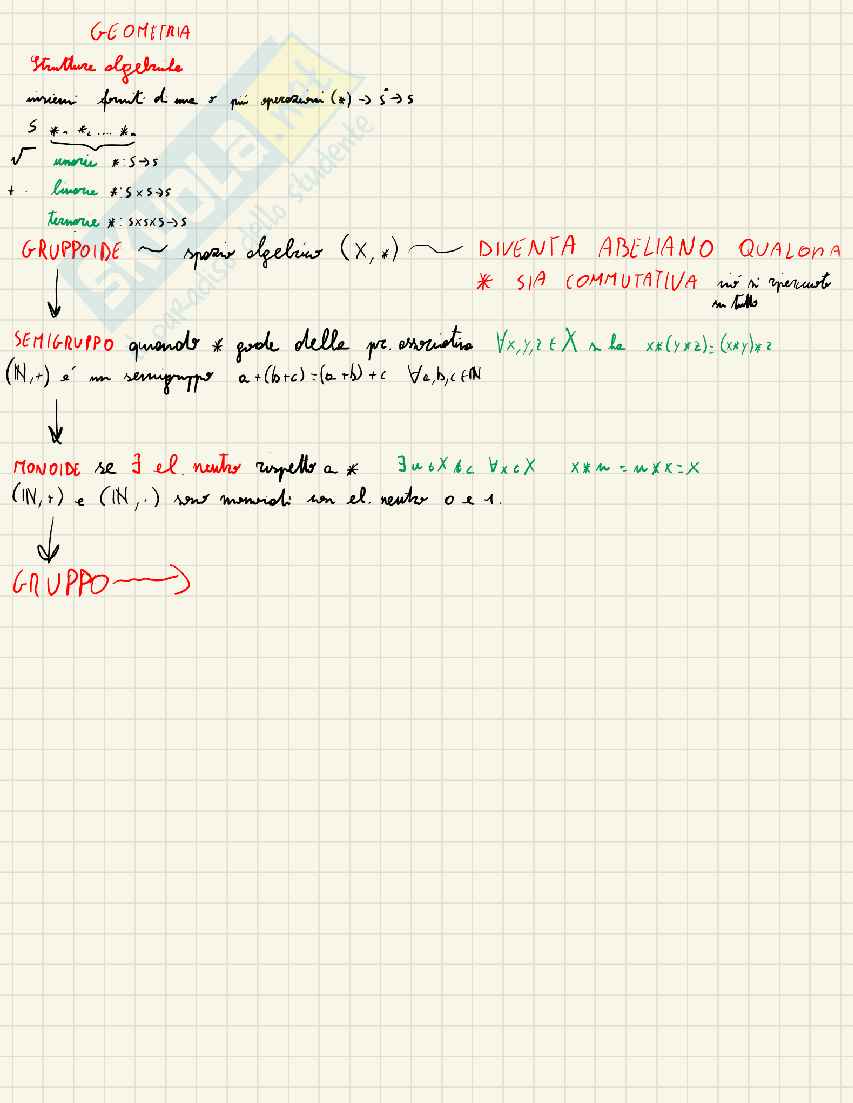 GEOMETRIA
Strutture algebriche
insiemi forniti di una o più operazioni (*) → Sⁿ → S
S *₁ *₂ .... *ₙ
√ unarie *: S→S
+ · binarie *: S×S→S
ternarie *: S×S×S→S
GRUPPOIDE ~ spazio algebrico (X,*) ~ DIVENTA ABELIANO QUALORA
* SIA COMMUTATIVA ciò si ripercuote
su tutto
SEMIGRUPPO quando * gode della pr. associativa ∀x,y,z ∈ X si ha x*(y*z)=(x*y)*z
(ℕ,+) é un semigruppo a+(b+c)=(a+b)+c ∀a,b,c∈ℕ
MONOIDE se ∃ el. neutro rispetto a * ∃u∈X t.c. ∀x∈X x*u=u*x=x
(ℕ,+) e (ℕ,·) sono monoidi con el. neutro 0 e 1.
GRUPPO →
SKUOLA.net
il paradiso dello studente